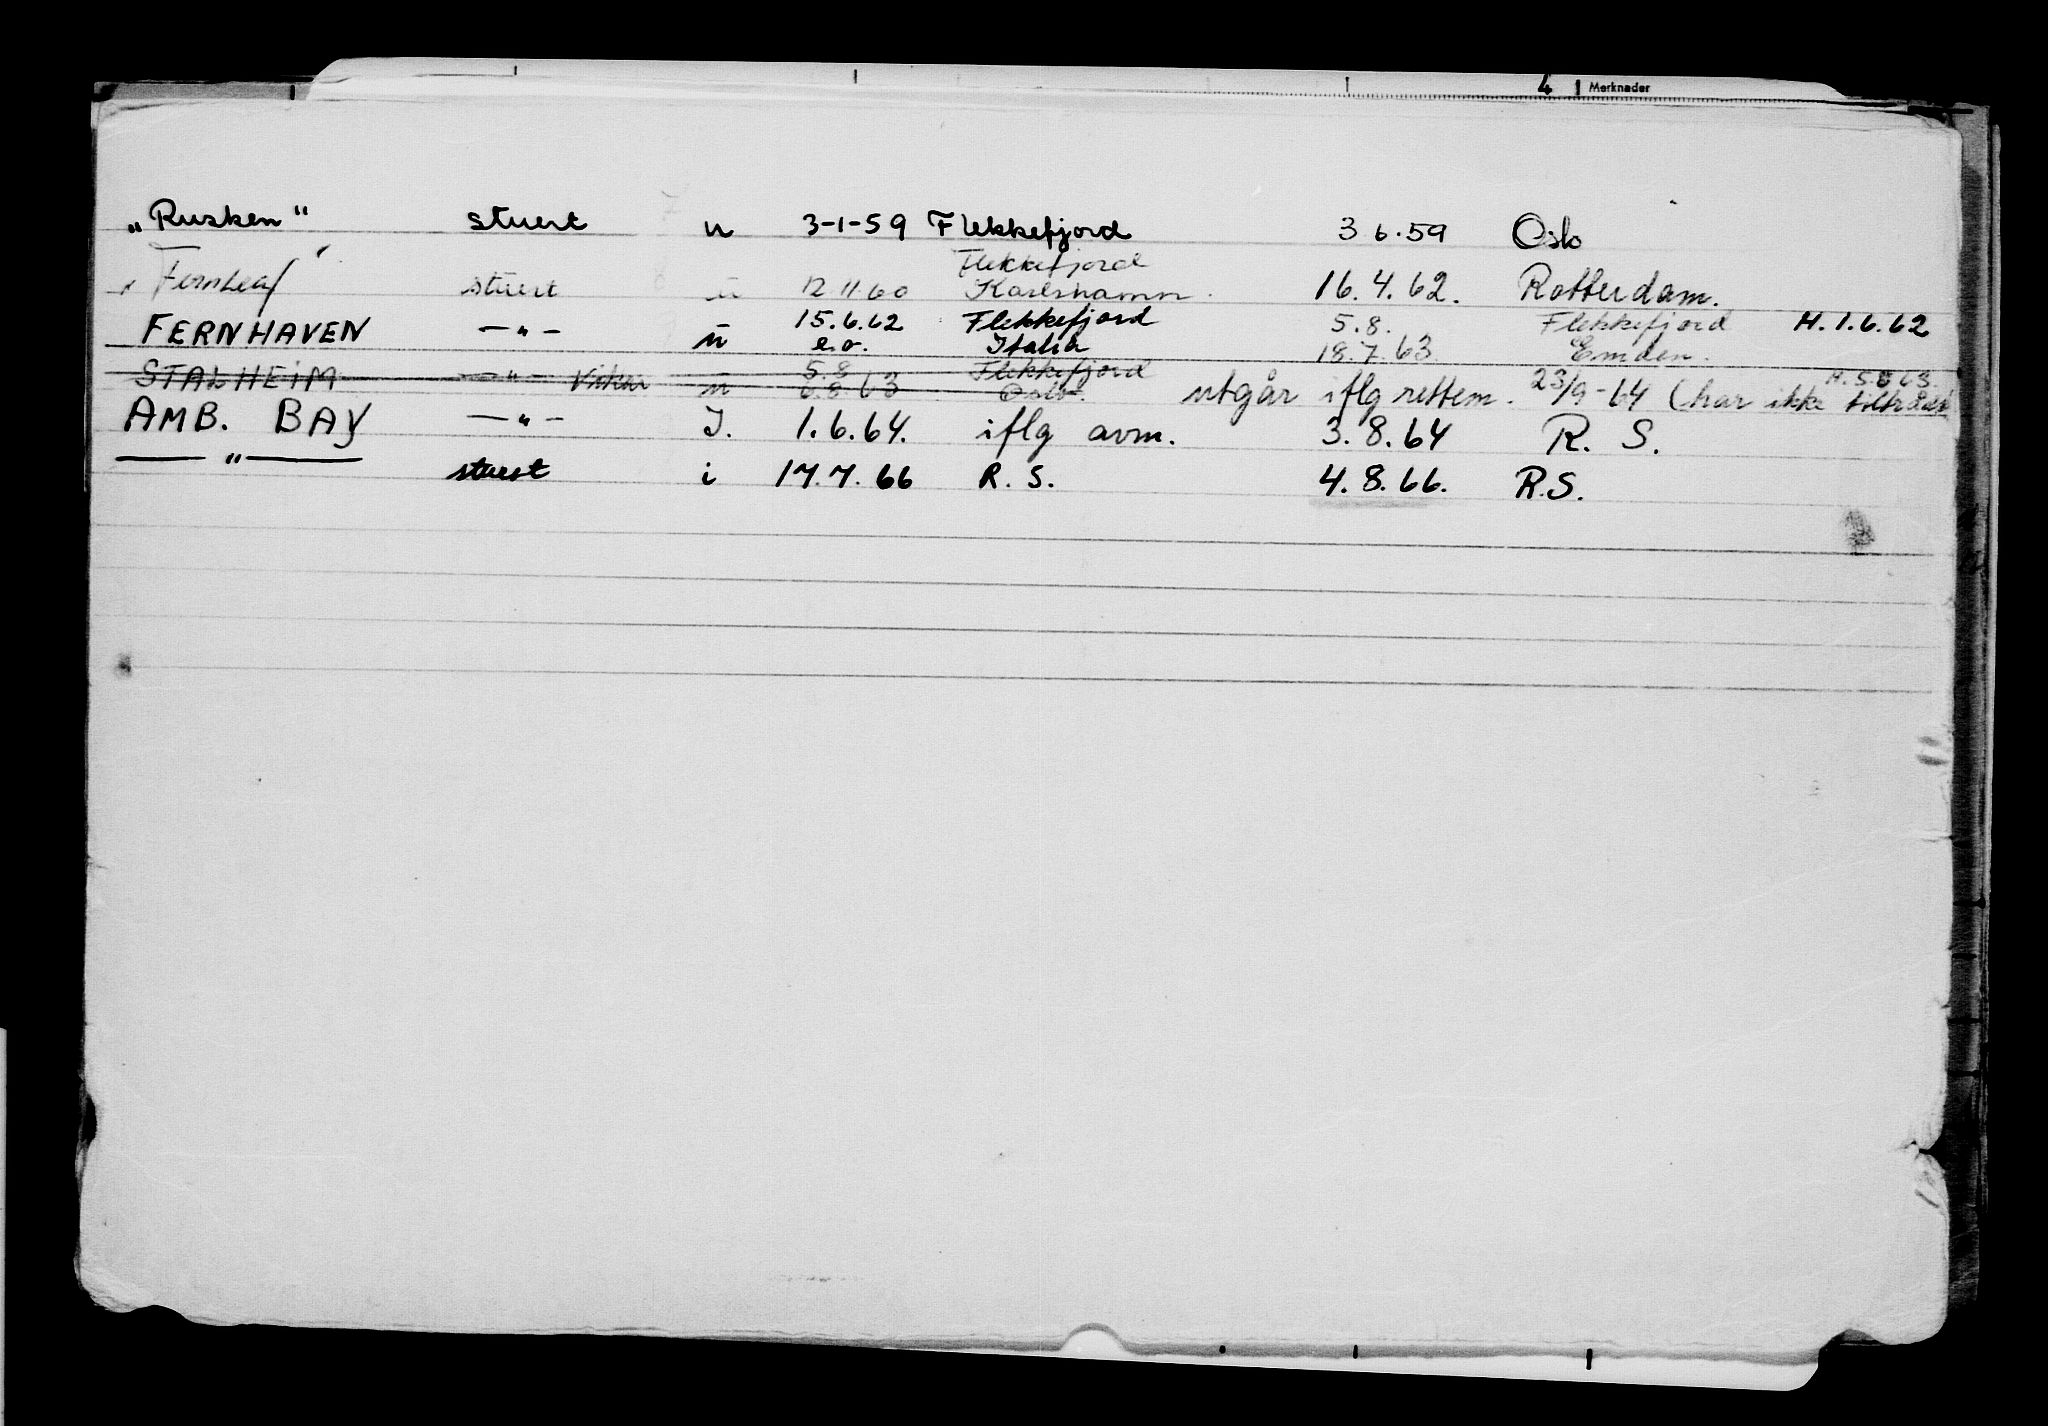 4 Merknader
„Rusken" stuert u 3-1-59 Flekkefjord 3 6.59 Oslo
Flekkefjord
" Fernleaf " stuert u 12 11.60 Karlshamn. 16.4.62. Rotterdam.
15.6.62 Flekkefjord 5.8. Flekkefjord H.1.6.62
FERNHAVEN —"— u e.o. Italia 18.7.63 Emden.
5.8 Flekkefjord H.5.8 63.
STALHEIM —"— Vikar u 6.8.63 Oslo. utgår iflg rettem. 23/9-64 (har ikke tiltrådt
AMB. BAY —"— I. 1.6.64. iflg avm. 3.8.64 R. S.
—"— stuert i 17.7.66 R. S. 4.8.66. R.S.